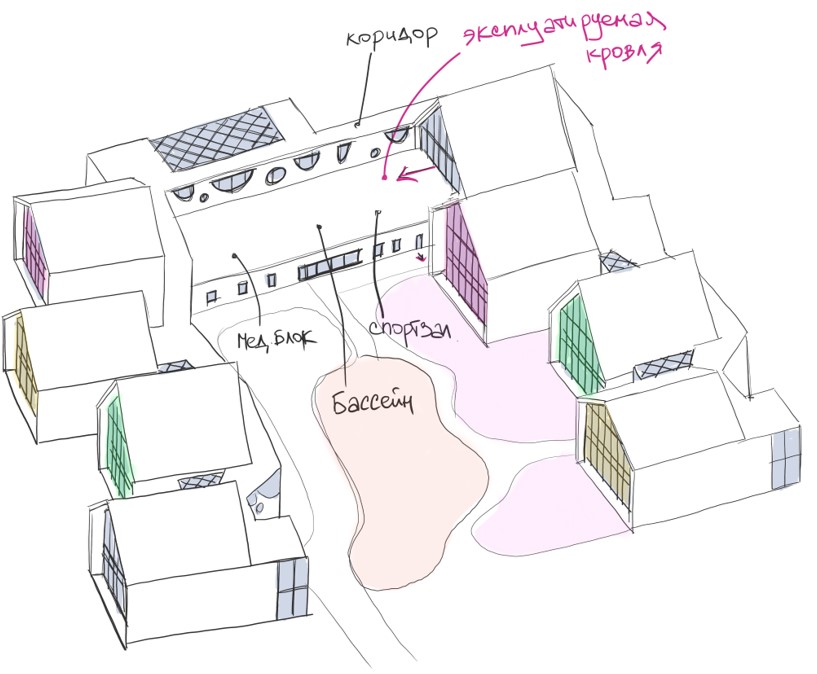 коридор
эксплуатируемая
кровля
мед. блок
спортзал
Бассейн